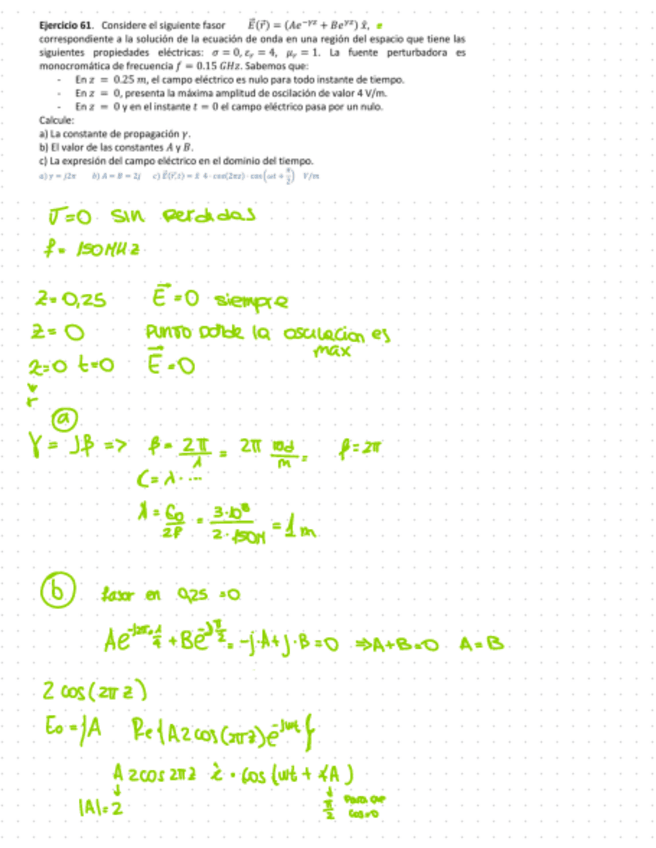 Ejercicio 61. Considere el siguiente fasor E⃗(r⃗) = (Ae^{-γz} + Be^{γz}) x̂,
correspondiente a la solución de la ecuación de onda en una región del espacio que tiene las
siguientes propiedades eléctricas: σ = 0, ε_r = 4, μ_r = 1. La fuente perturbadora es
monocromática de frecuencia f = 0.15 GHz. Sabemos que:
- En z = 0.25 m, el campo eléctrico es nulo para todo instante de tiempo.
- En z = 0, presenta la máxima amplitud de oscilación de valor 4 V/m.
- En z = 0 y en el instante t = 0 el campo eléctrico pasa por un nulo.
Calcule:
a) La constante de propagación γ.
b) El valor de las constantes A y B.
c) La expresión del campo eléctrico en el dominio del tiempo.
a) γ = j2π b) A = B = 2j c) E⃗(r⃗,t) = x̂ 4 · cos(2πz) · cos(ωt + π/2) V/m
σ=0 sin perdidas
f = 150 MHz
z=0,25 E⃗=0 siempre
z=0 punto donde la oscilacion es
max
z=0 t=0 E⃗=0
ⓐ
γ = jβ => β = 2π/λ = 2π rad/m = β=2π
C=λ·...
λ = C₀/2f = 3·10⁸/2·150M = 1 m
ⓑ fasor en 0,25 =0
= -j·A+j·B=0 ⇒A+B=0 A=B
2 cos(2πz)
E₀=jA Re{A2cos(2πz)e^{-jωt}}
A 2cos 2πz · cos(ωt + ∠A)
|A|=2 π/2 para que
cos=0